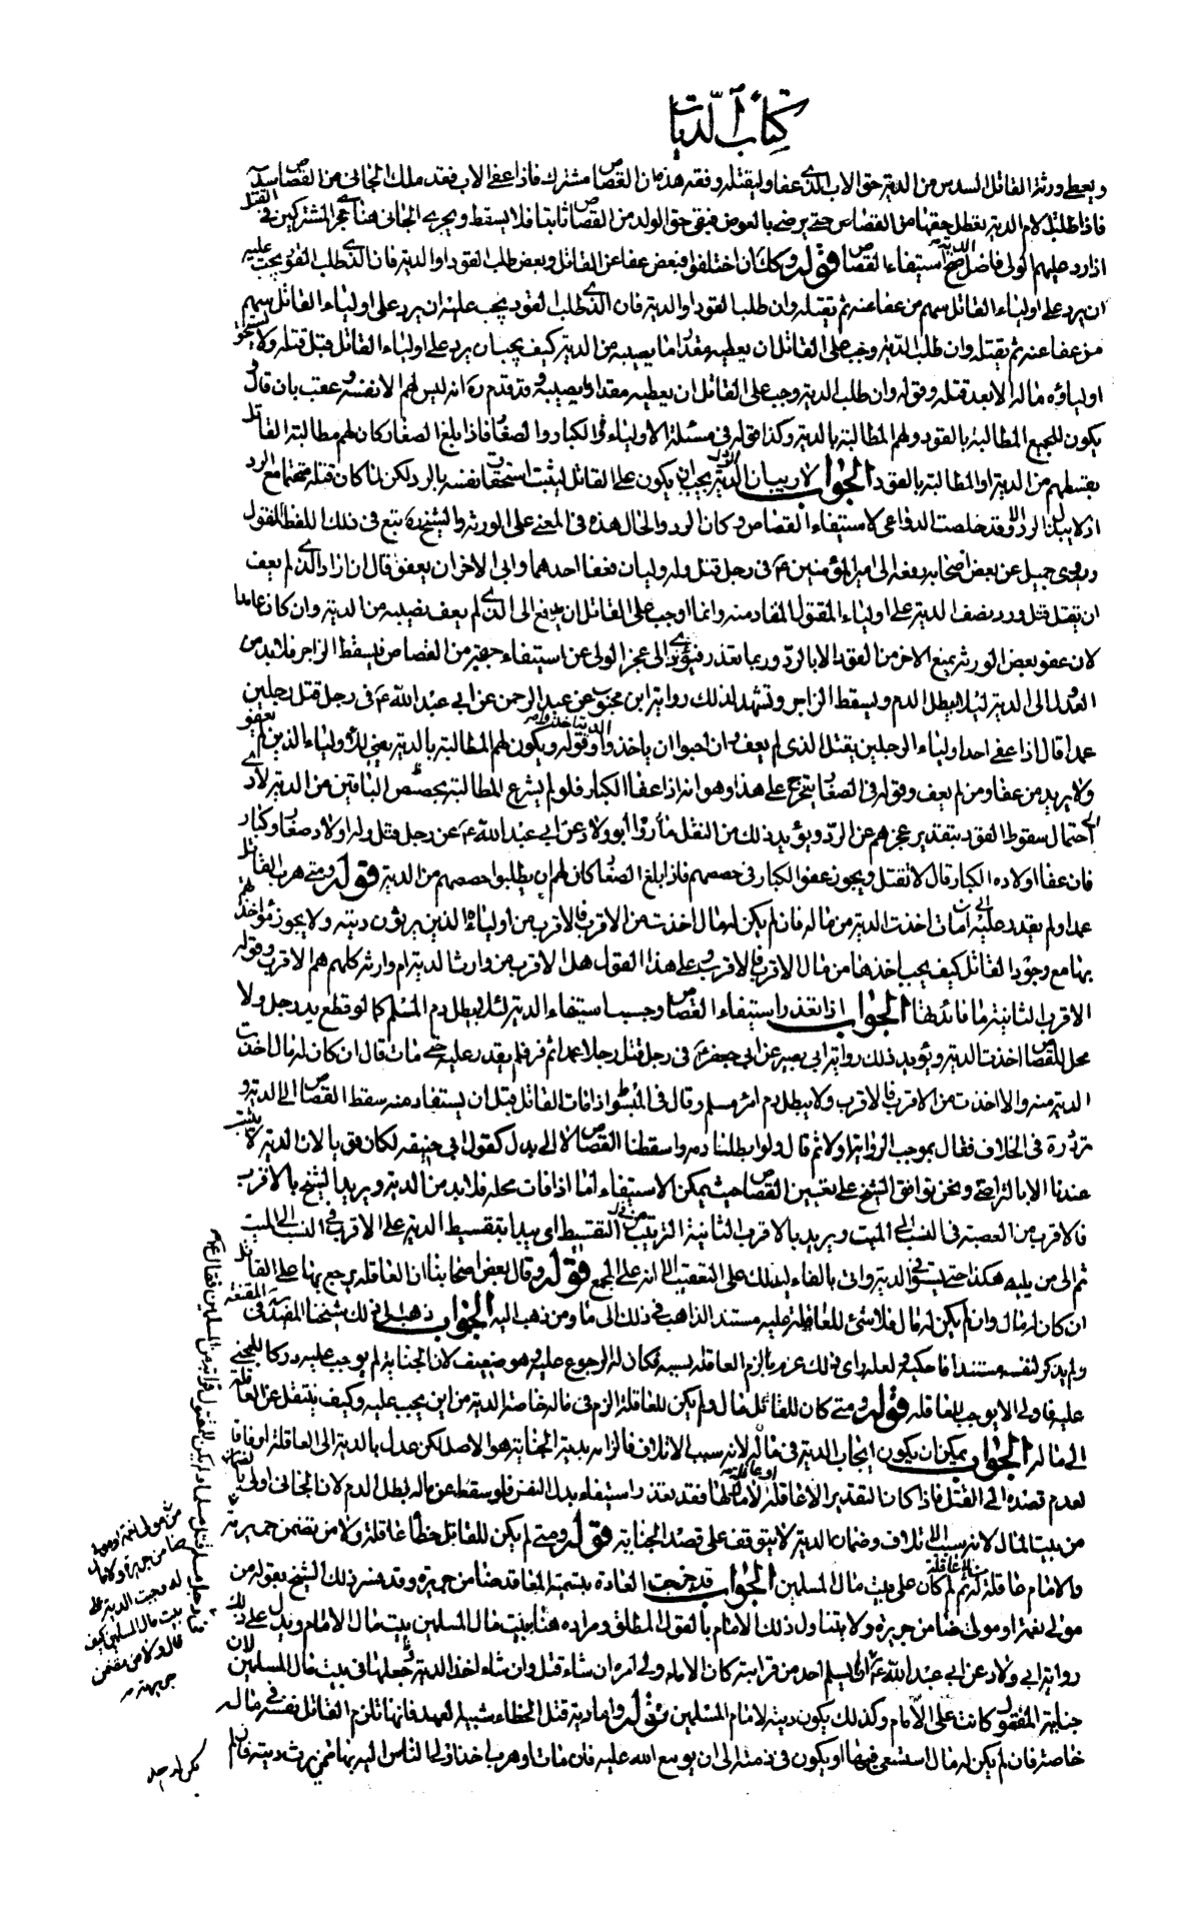 كتاب الديات
ويعطي ورثة القاتل السدس من الدية حق الاب الذي عفا وليقتله وفقه هذه ان القصاص مشترك فاذا عفى الاب فقد ملك الجاني من القصاص سدسه
فاذا طلبت الام الدية بطل حقها من القصاص حتى يرضى بالعوض فبقي حق الولد من القصاص ثابتا فلا يسقط ويجري الجاني هنا مجرى المشتركين في القتل
اذا رد عليهم الولي فاضل الدية صح استيفاء القصاص قوله وكك ان اختلفوا فبعض عفا عن القاتل وبعض طلب القود او الدية فان الذي طلب القود يجب عليه
ان يرد على اولياء القاتل سهم من عفا عنه ثم يقتله وان طلب القود او الدية فان الذي طلب القود يجب عليه ان يرد على اولياء القاتل سهم
من عفا عنه ثم يقتله وان طلب الدية وجب على القاتل ان يعطيه مقدار ما يصيبه من الدية كيف يجب ان يرد على اولياء القاتل قبل قتله ولا يستحق
اولياؤه ماله الا بعد قتله وقوله وان طلب الدية وجب على القاتل ان يعطيه مقدار ما يصيبه وقد تقدم ره انه ليس لهم الا نفسه وعقب بان قال
يكون للجميع المطالبة بالقود ولهم المطالبة بالدية وكذا قوله في مسئلة الاولياء الكبار والصغار فاذا بلغ الصغار كان لهم مطالبة القاتل
بقسطهم من الدية او المطالبة بالقود الجواب لا ريب ان الدية يجب ان يكون على القاتل ليثبت استحقاق نفسه بالرد لكن لما كان قتله متحتما مع الرد
اذ لا يبذل الرد الا وقد خلصت الدواعي لاستيفاء القصاص وكان الرد والحال هذه في المعنى على الورثة والشيخ ره تبع في ذلك اللفظ المنقول
وروى جميل عن بعض اصحابه رفعه الى امير المؤمنين ع في رجل قتل وله وليان فعفا احدهما وابى الاخر ان يعفو قال ان اراد الذي لم يعف
ان يقتل قتل ورد نصف الدية على اولياء المقتول المقاد منه وانما اوجب على القاتل ان يدفع الى الذي لم يعف نصيبه من الدية وان كان عامدا
لان عفو بعض الورثة يمنع الاخر من القود الا بالرد وربما تعذر فيؤدي الى عجز الولي عن استيفاء حقه من القصاص فيسقط الزاجر فلا بد من
العدول الى الدية لئلا يبطل الدم ويسقط الزاجر وتشهد لذلك رواية ابن محبوب عن عبد الرحمن عن ابي عبد الله ع في رجل قتل رجلين
عمدا قال اذا عفى احد اولياء الرجلين يقتل الذي لم يعف وان احبوا ان ياخذوا الدية اخذوا وقوله ويكون لهم المطالبة بالدية يعني للاولياء الذين لم يعفو
ولا يريد من عفا ومن لم يعف وقوله في الصغار يتخرج على هذا وهو انه اذا عفا الكبار فلو لم يشرع المطالبة بحصص الباقين من الدية لادى
الى احتمال سقوط القود بتقدير عجزهم عن الرد ويؤيد ذلك من النقل ما رواه ابو ولاد عن ابي عبد الله ع عن رجل قتل وله اولاد صغار وكبار
فان عفا اولاده الكبار قال لا تقتل ويجوز عفو الكبار في حصصهم فاذا بلغ الصغار كان لهم ان يطلبوا حصصهم من الدية قوله ومتى هرب القاتل
عمدا ولم يقدر عليه الى ان مات اخذت الدية من ماله فان لم يكن له مال اخذت من الاقرب فالاقرب من اولياءه الذين يرثون ديته ولا يجوز مؤاخذتهم
بها مع وجود القاتل كيف يجب اخذها من مال الاقرب فالاقرب وعلى هذا القول هل الاقرب من وارث الدية ام وارثه كلهم هم الاقرب وقوله
الاقرب الثانية ما فائدتها الجواب اذا تعذر استيفاء القصاص وجب استيفاء الدية لئلا يبطل دم المسلم كما لو قطع يد رجل ولا
محل للقصاص اخذت الدية ويؤيد ذلك رواية ابي بصير عن ابي جعفر ع في رجل قتل رجلا عمدا ثم فر فلم يقدر عليه حتى مات قال ان كان له مال اخذت
الدية منه والا اخذت من الاقرب فالاقرب ولا يبطل دم امرء مسلم وقال في المبسوط اذا مات القاتل قبل ان يستفاد منه سقط القصاص الى الدية و
تردد ره في الخلاف فقال بموجب الرواية اولا ثم قال ولو ابطلنا دمه واسقطنا القصاص لا الى بدل كقول ابي حنيفه لكان قويا لان الدية لا يثبت
عندنا الا بالتراضي ونحن نوافق الشيخ على تعيين القصاص حيث يمكن الاستيفاء اما اذا فات محله فلا بد من الدية ويريد الشيخ بالاقرب
فالاقرب من العصبة في النسب الى الميت ويريد بالاقرب الثانية الترتيب في التقسيط اي يبدا بتقسيط الدية على الاقرب في النسب الى الميت
ثم الى من يليه هكذا حتى يستوفي الدية واتى بالفاء ليدلك على التعقيب لا انه على الجمع قوله وقال بعض اصحابنا ان العاقلة يرجع بها على القاتل
ان كان له مال وان لم يكن له مال فلا شئ للعاقلة عليه مستند الذاهب في ذلك الى ما ومن ذهب اليه الجواب ذهب الى ذلك شيخنا المفيد في المقنعة
ولم يذكر لنفسه مستندا فاحكيه ولعله راى ذلك عزما لزم العاقله بسببه فكان له الرجوع عليه وهو ضعيف لان الجناية لم يوجب عليه دركا للمجني
عليه فاولى الا يوجب للعاقله قوله ومتى كان للقاتل مال ولم يكن للعاقلة الزم في ماله خاصة الدية من اين يجب عليه وكيف ينتقل عن العاقلة
الى ماله الجواب يمكن ان يكون ايجاب الدية في ماله لانه سبب الاتلاف فالزامه بدية الجناية هو الاصل لكن عدل بالدية الى العاقلة ارفاقا
لعدم قصده الى القتل فاذا كان التقدير الا عاقلة او عاقلة لا مال لها فقد تعذر استيفاء بدل النفس فلو سقط عن ماله بطل الدم لان الجاني اولى بالضمان
من بيت المال لانه سبب الاتلاف وضمان الدية لا يتوقف على قصد الجناية قوله ومتى لم يكن للقاتل خطأ عاقلة ولا من تضمن جريرته
والامام عاقلة له ثم لم كان على بيت مال المسلمين الجواب قد جرت العادة بتسمية المعاقد ضامن جريرة وقد فسر ذلك الشيخ بقوله من
مولى نعمة او مولى ضامن جريرة ولا يتناول ذلك الامام بالقول المطلق ومراده هنا ببيت مال المسلمين بيت مال الامام ويدل على ذلك
رواية ابي ولاد عن ابي عبد الله ع ان لم يسلم احد من قرابته كان الامام ولي امره ان شاء قتل وان شاء اخذ الدية فجعلها في بيت مال المسلمين لان
جناية المقتول كانت على الامام وكذلك يكون ديته لامام المسلمين قوله واما دية قتل الخطاء شبيه العمد فانها تلزم القاتل نفسه في ماله
خاصة فان لم يكن له مال استسعى فيها او يكون في ذمته الى ان يوسع الله عليه فان مات او هرب اخذ اولى الناس اليه بها ممن يرث ديته فان لم
يكن له احد
من مولى نعمة او مولى
ضامن جريرة ولا مال
له وجبت الدية على
بيت مال المسلمين كيف
قال ولا من تضمن
جريرته